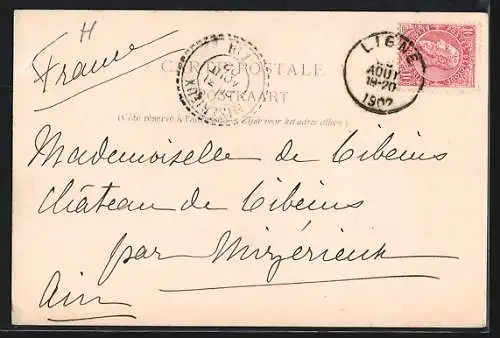 H
France
CARTE POSTALE
POSTKAART
(Côté réservé à l'adresse. — Zijde voor het adres alleen.)
LIGNE
AOUT
18-20
1902
10
Mademoiselle de Cibeins
Château de Cibeins
par Mizérieux
Ain